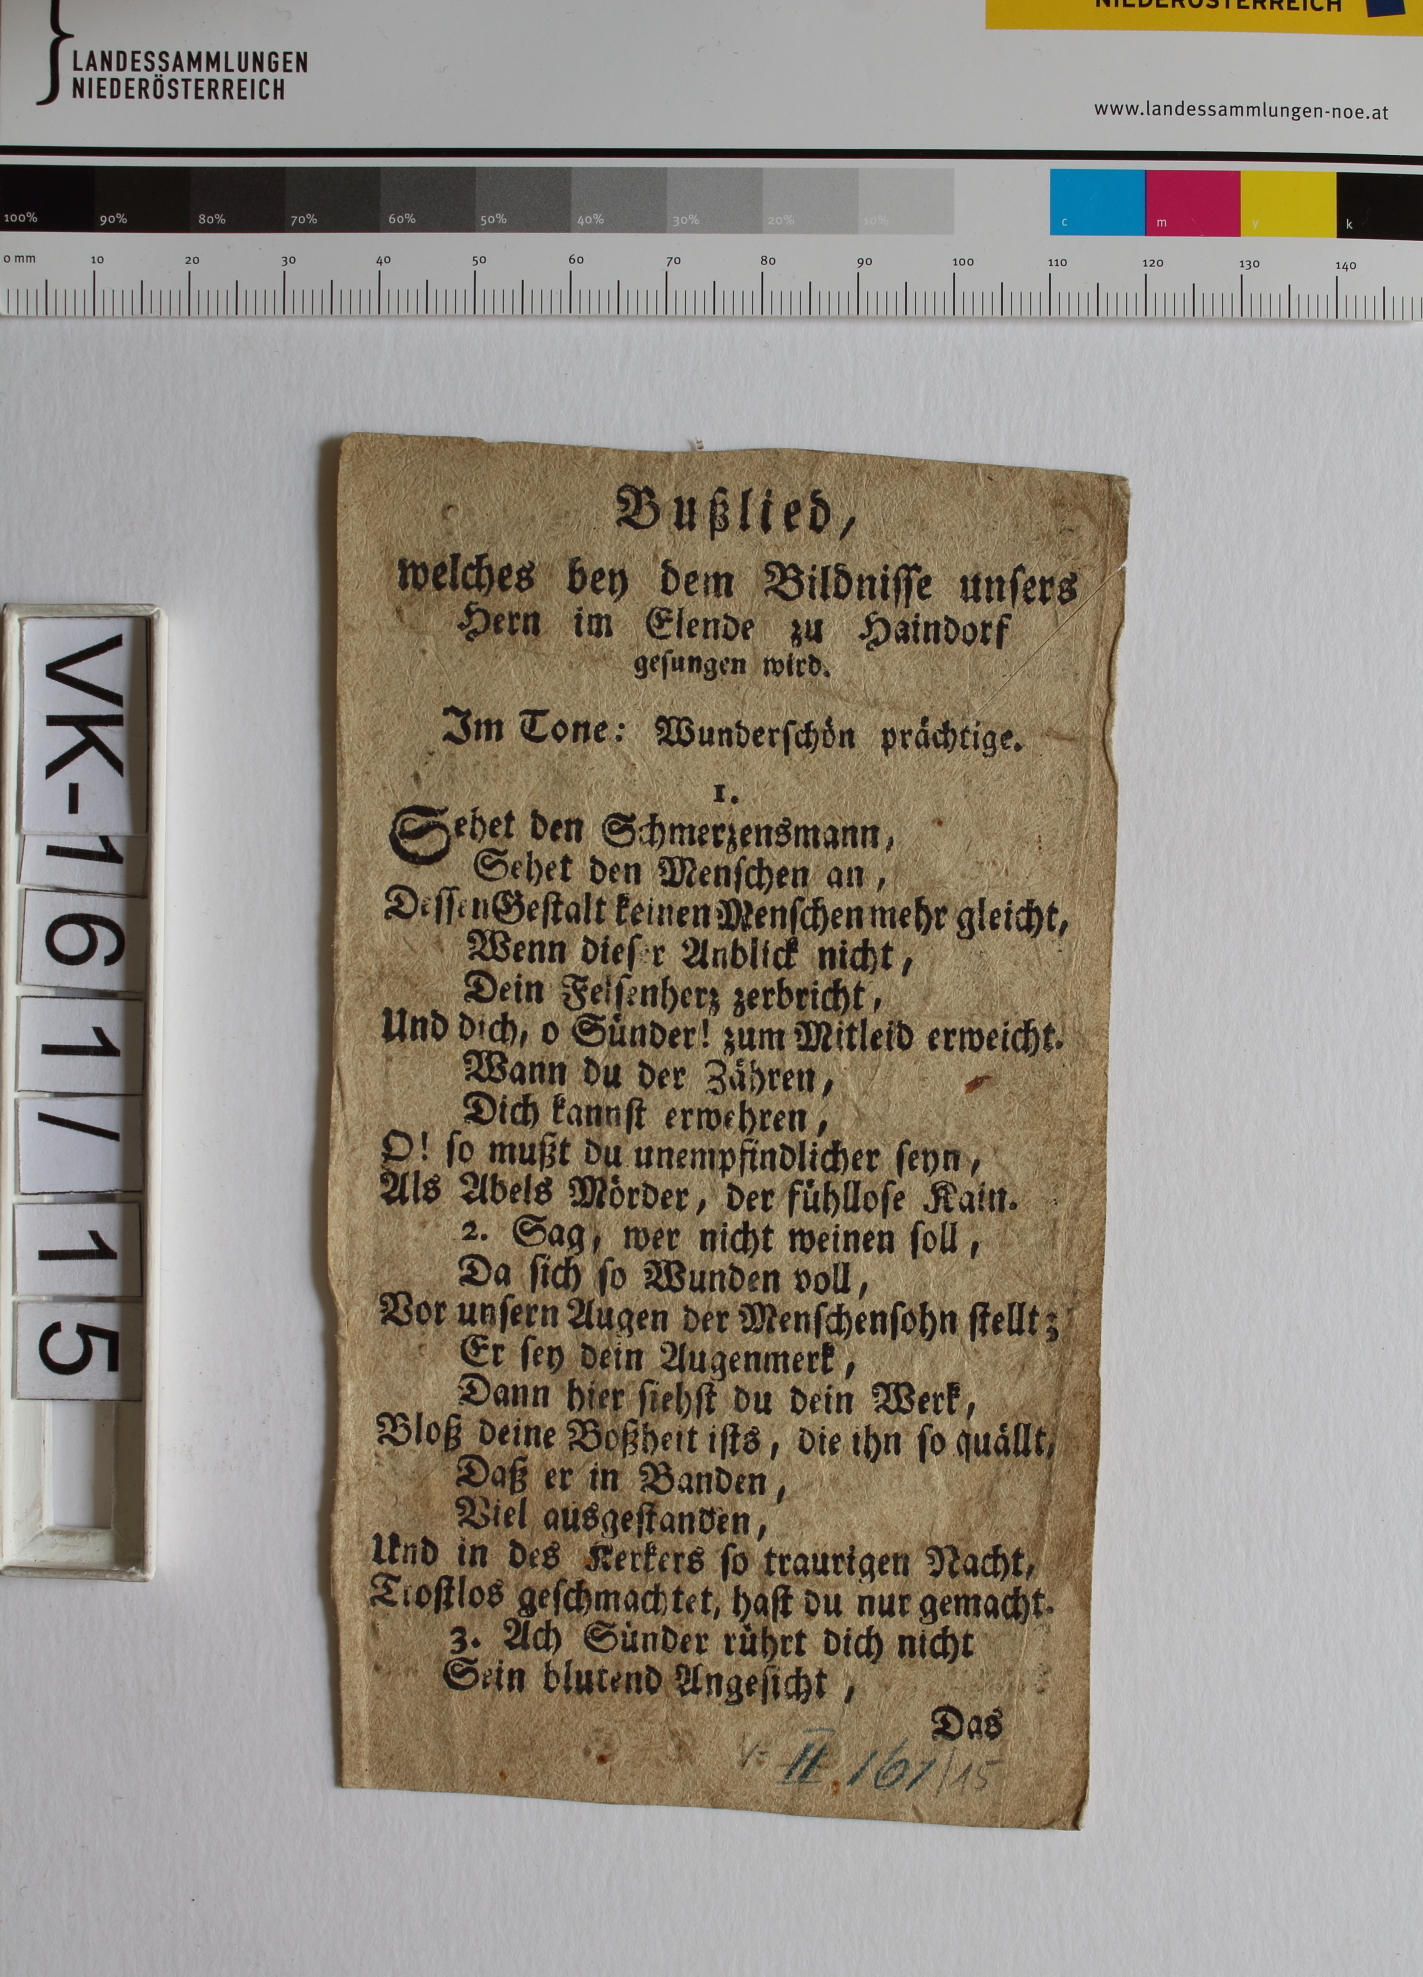 NIEDERÖSTERREICH
LANDESSAMMLUNGEN
NIEDERÖSTERREICH
www.landessammlungen-noe.at
100% 90% 80% 70% 60% 50% 40% 30% 20% 10% c m y k
0 mm 10 20 30 40 50 60 70 80 90 100 110 120 130 140
VK-161/15
Bußlied,
welches bey dem Bildnisse unsers
Hern im Elende zu Haindorf
gesungen wird.
Im Tone: Wunderschön prächtige.
1.
Sehet den Schmerzensmann,
Sehet den Menschen an,
Dessen Gestalt keinen Menschen mehr gleicht,
Wenn dieser Anblick nicht,
Dein Felsenherz zerbricht,
Und dich, o Sünder! zum Mitleid erweicht.
Wann du der Zähren,
Dich kannst erwehren,
O! so mußt du unempfindlicher seyn,
Als Abels Mörder, der fühllose Kain.
2. Sag, wer nicht weinen soll,
Da sich so Wunden voll,
Vor unsern Augen der Menschensohn stellt;
Er sey dein Augenmerk,
Dann hier siehst du dein Werk,
Bloß deine Boßheit ists, die ihn so quällt,
Daß er in Banden,
Viel ausgestanden,
Und in des Kerkers so traurigen Nacht,
Trostlos geschmachtet, hast du nur gemacht.
3. Ach Sünder rührt dich nicht
Sein blutend Angesicht,
Das
II 161/15